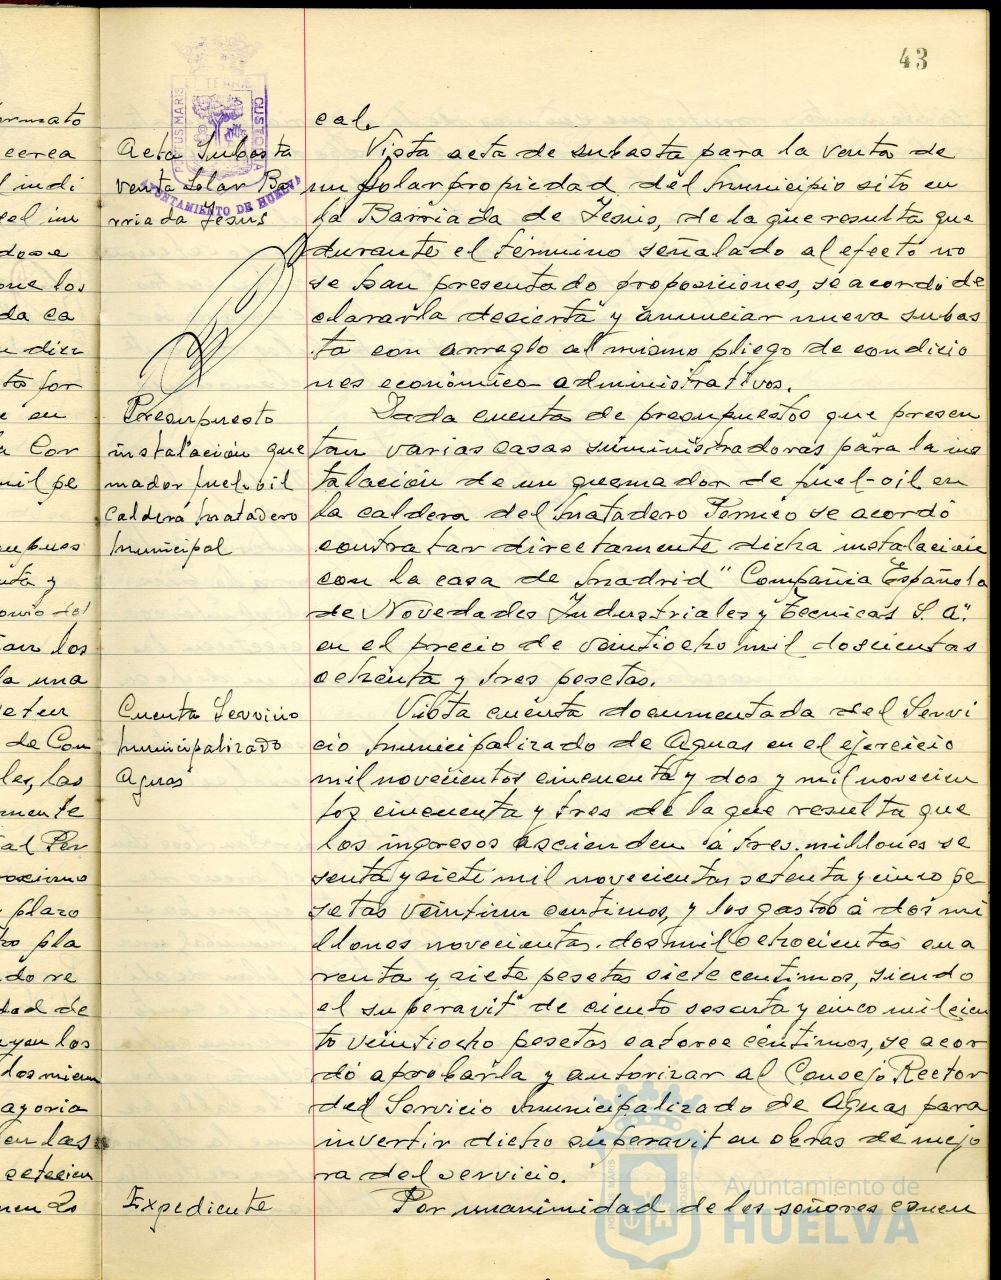 43
cal.
Acta Subasta
venta Solar Ba-
rriada Jesús
Vista acta de subasta para la venta de
un Solar propiedad del Municipio sito en
la Barriada de Jesus, de la que resulta que
durante el término señalado al efecto no
se han presentado proposiciones, se acordó de
clararla desierta y anunciar nueva subas
ta con arreglo al mismo pliego de condicio
nes económico-administrativos.
Presupuesto
instalación que
mador fuel-oil
Caldera Matadero
Municipal
Dada cuenta de presupuestos que presen
tan varias casas suministradoras para la ins
talación de un quemador de fuel-oil en
la caldera del Matadero Térmico se acordó
contratar directamente dicha instalación
con la casa de Madrid "Compañia Española
de Novedades Industriales y Tecnicas S. A."
en el precio de veintiocho mil doscientas
ochenta y tres pesetas.
Cuenta Servicio
Municipalizado
Aguas
Vista cuenta documentada del Servi
cio Municipalizado de Aguas en el ejercicio
mil novecientos cincuenta y dos y mil novecien
tos cincuenta y tres de la que resulta que
los ingresos ascienden á tres millones se
senta y siete mil novecientas setenta y cinco pe
setas veintiun centimos, y los gastos á dos mi
llones novecientas dos mil ochocientas cua
renta y siete pesetas siete centimos, siendo
el superavit de ciento sesenta y cinco mil cien
to veintiocho pesetas catorce céntimos, se acor
dó aprobarla y autorizar al Consejo Rector
del Servicio Municipalizado de Aguas para
invertir dicho superavit en obras de mejo
ra del servicio.
Expediente
Por unanimidad de los señores concu
PORTUS MARIS
TERRÆ
CUSTODIA
AYUNTAMIENTO DE HUELVA
Ayuntamiento de
HUELVA